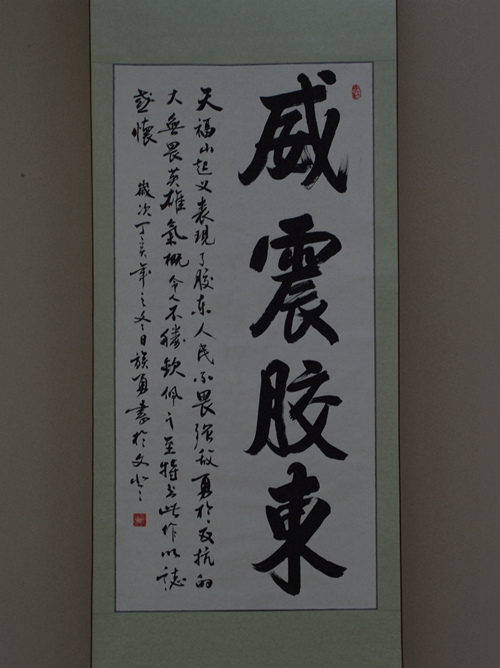 威震胶東
天福山起义表現了胶东人民不畏强敌勇於反抗的
大無畏英雄氣概令人不勝欽佩之至特书此作以誌
感懷 歲次丁亥年之冬日族勇書於文登